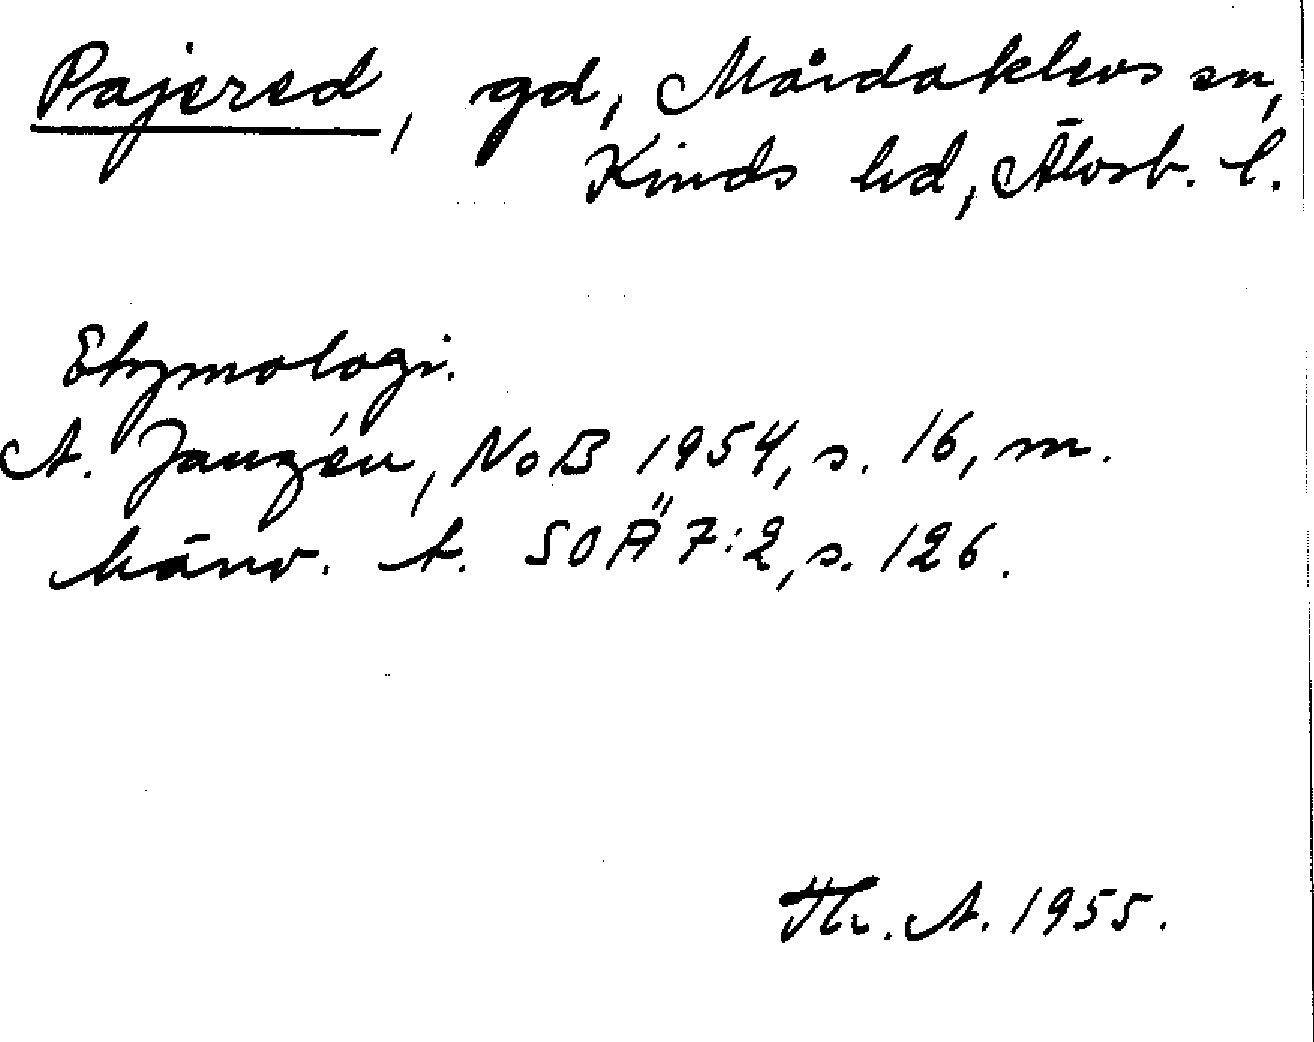 Pajered, gd, Mårdaklevs sn,
Kinds hd, Älvsb. l.
Etymologi.
A. Janzén, NoB 1954, s. 16, m.
hänv. t. SOÄ 7:2, s. 126.
Th. A. 1955.